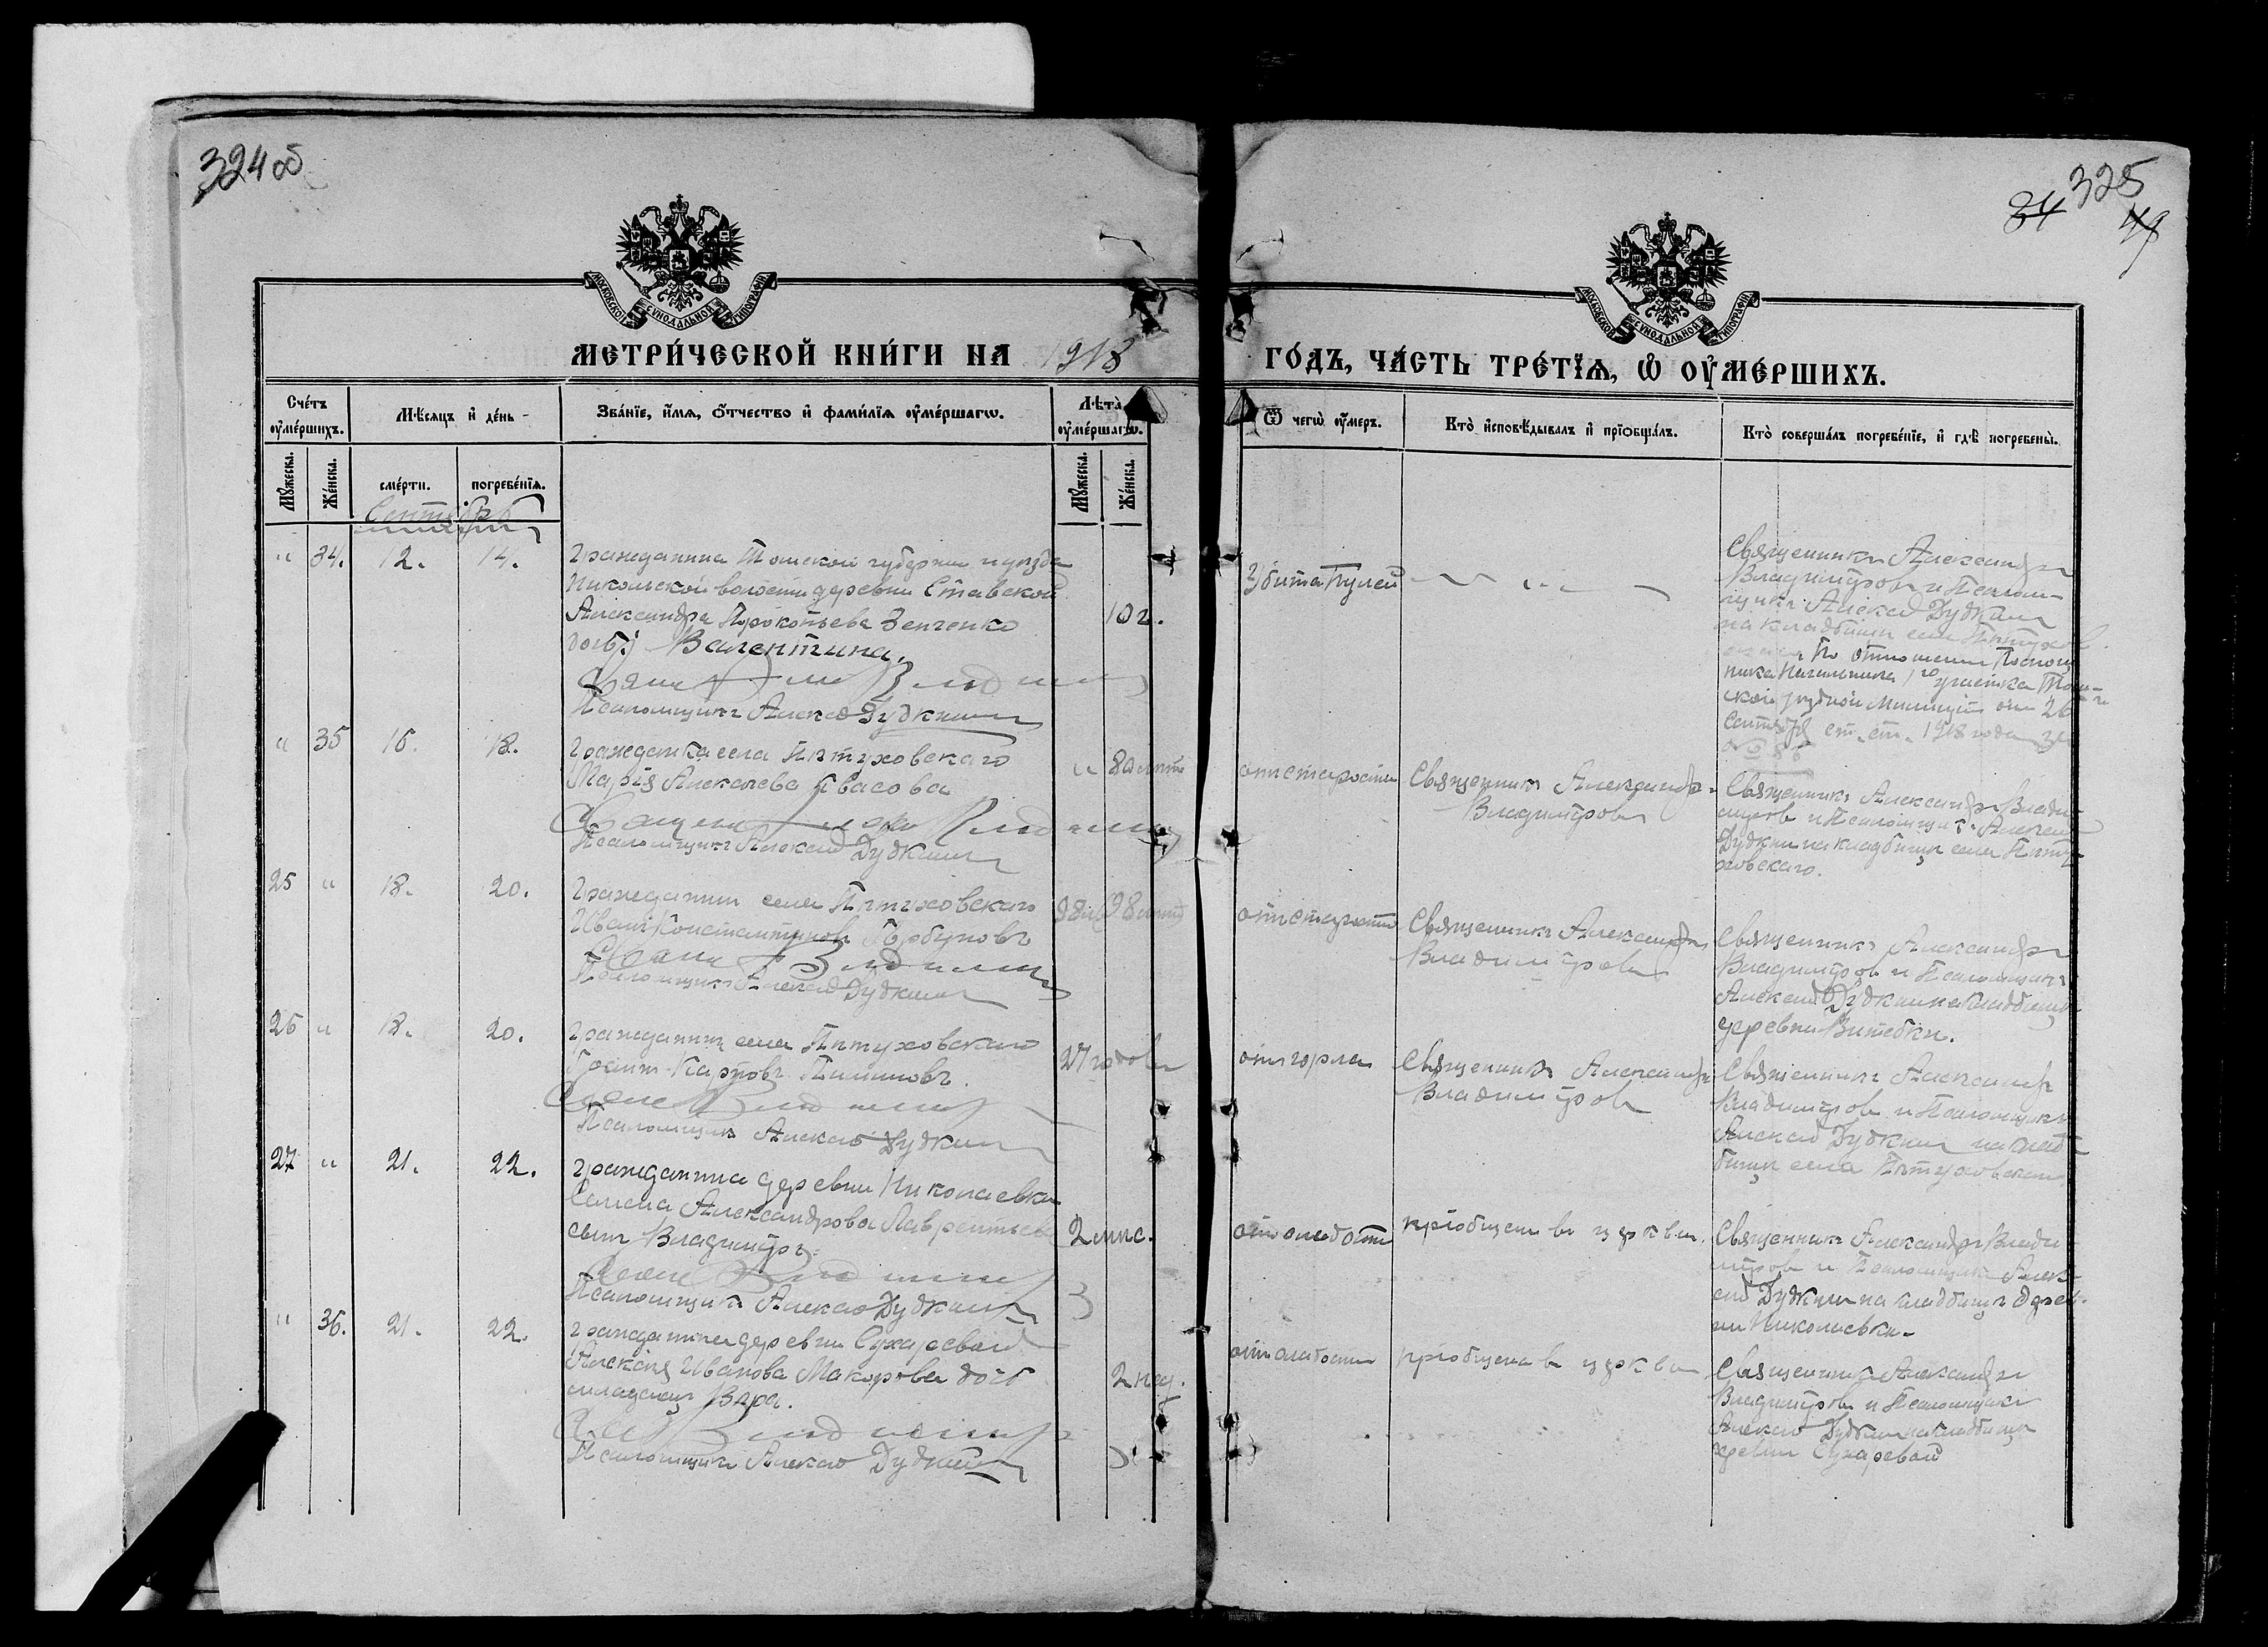 324 об
325
34
49
МОСКОВСКОЙ СѴНОДАЛЬНОЙ ТИПОГРАФІИ
МОСКОВСКОЙ СѴНОДАЛЬНОЙ ТИПОГРАФІИ
МЕТРИ́ЧЕСКОЙ КНИ́ГИ НА 1918
ГО́ДЪ, ЧА́СТЬ ТРЕ́ТЇѦ, Ѡ҆ ОУ҆МЕ́РШИХЪ.
Сче́тъ оу҆ме́ршихъ.
Мѣ́сѧцъ и҆ де́нь
Зва́нїе, и҆́мѧ, ѻ҆́тчество и҆ фамі́лїѧ оу҆ме́ршагѡ.
Лѣ́та оу҆ме́ршагѡ.
Ѿ чегѡ̀ оу҆́меръ.
Кто̀ и҆сповѣ́дывалъ и҆ прїѡбща́лъ.
Кто̀ соверша́лъ погребе́нїе, и҆ гдѣ̀ погребены̀.
Мꙋ́жеска.
Же́нска.
сме́рти.
погребе́нїѧ.
Мꙋ́жеска.
Же́нска.
Сентябрь
" 34. 12. 14.
Гражданина Томской губерніи и уѣзда
Никольской волости деревни Ставской
Александра Прокопьева Зенченко
дочь Валентина.
Псаломщикъ Алексѣй Дудкинъ
10 г.
Убита пулей
Священникъ Александръ
Владиміровъ и Псалом-
щикъ Алексѣй Дудкинъ
на кладбищѣ села Пѣтухов
По отношенію Помощ
ника Начальника 1го участка Том-
ской уѣздной Милиціи отъ 26
Сентяб ст. ст. 1918 года за
" 35 16. 18.
Гражданка села Пѣтуховскаго
Марія Алексѣева Квасова
Псаломщикъ Алексѣй Дудкинъ
" 80 лѣтъ
отъ старости
Священникъ Александръ
Владиміровъ
Священникъ Александръ Влади-
міровъ и Псаломщикъ Алексѣй
Дудкинъ на кладбищѣ села Пѣту-
ховскаго.
25 " 18. 20.
Гражданинъ села Пѣтуховскаго
Иванъ Константиновъ Горбуновъ
Псаломщикъ Алексѣй Дудкинъ
98 лѣтъ
отъ старости
Священникъ Александръ
Владиміровъ
Священникъ Александръ
Владиміровъ и Псаломщикъ
Алексѣй Дудкинъ на кладбищѣ
деревни Витебки.
26 " 18. 20.
Гражданинъ села Пѣтуховскаго
Карповъ
Псаломщикъ Алексѣй Дудкинъ
27 годовъ
отъ горла
Священникъ Александръ
Владиміровъ
Священникъ Александръ
Владиміровъ и Псаломщикъ
Алексѣй Дудкинъ на клад-
бищѣ села Пѣтуховскаго
27 " 21. 22.
Гражданина деревни Николаевки
Семена Александрова Лаврентьева
сынъ Владиміръ.
Псаломщикъ Алексѣй Дудкинъ
2 мѣс.
отъ слабости
пріобщенъ въ церкви.
Священникъ Александръ Влади-
міровъ и Псаломщикъ Алек-
сѣй Дудкинъ на кладбищѣ дерев-
ни Николаевки.
" 36. 21. 22.
Гражданина деревни Сухаревой
Алексѣя Иванова Макарова дочь
младенецъ Вѣра.
Псаломщикъ Алексѣй Дудкинъ
2 нед.
отъ слабости
пріобщена въ церкви
Священникъ Александръ
Владиміровъ и Псаломщикъ
Алексѣй Дудкинъ на кладбищѣ
деревни Сухаревой